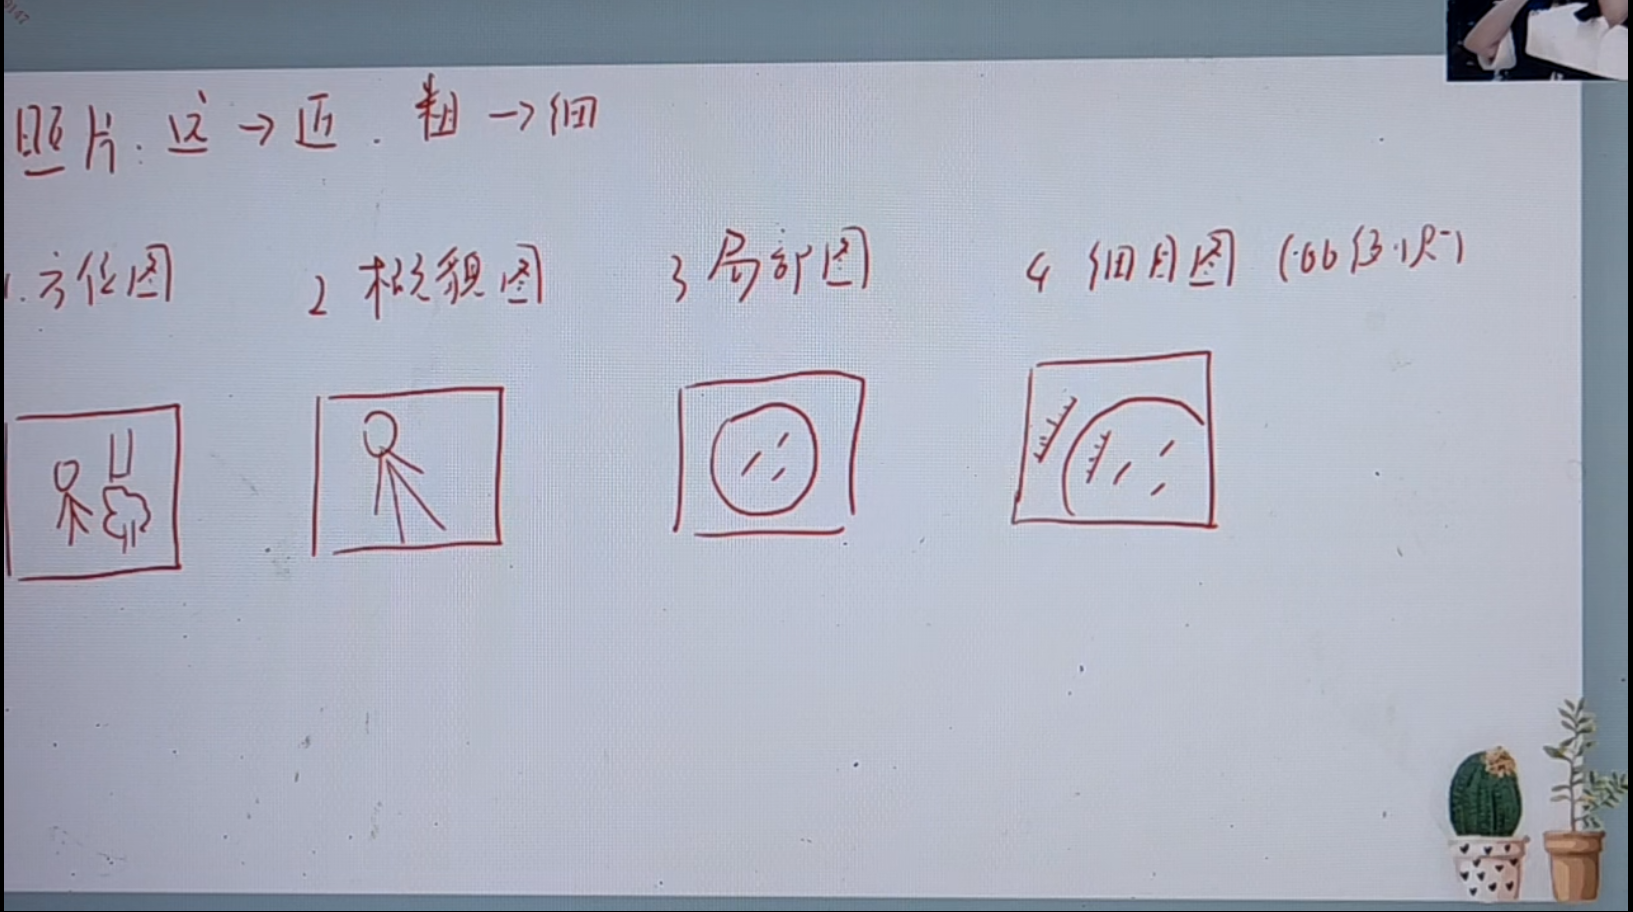 照片: 远→近. 粗→细
1.方位图 2 概貌图 3 局部图 4 细目图